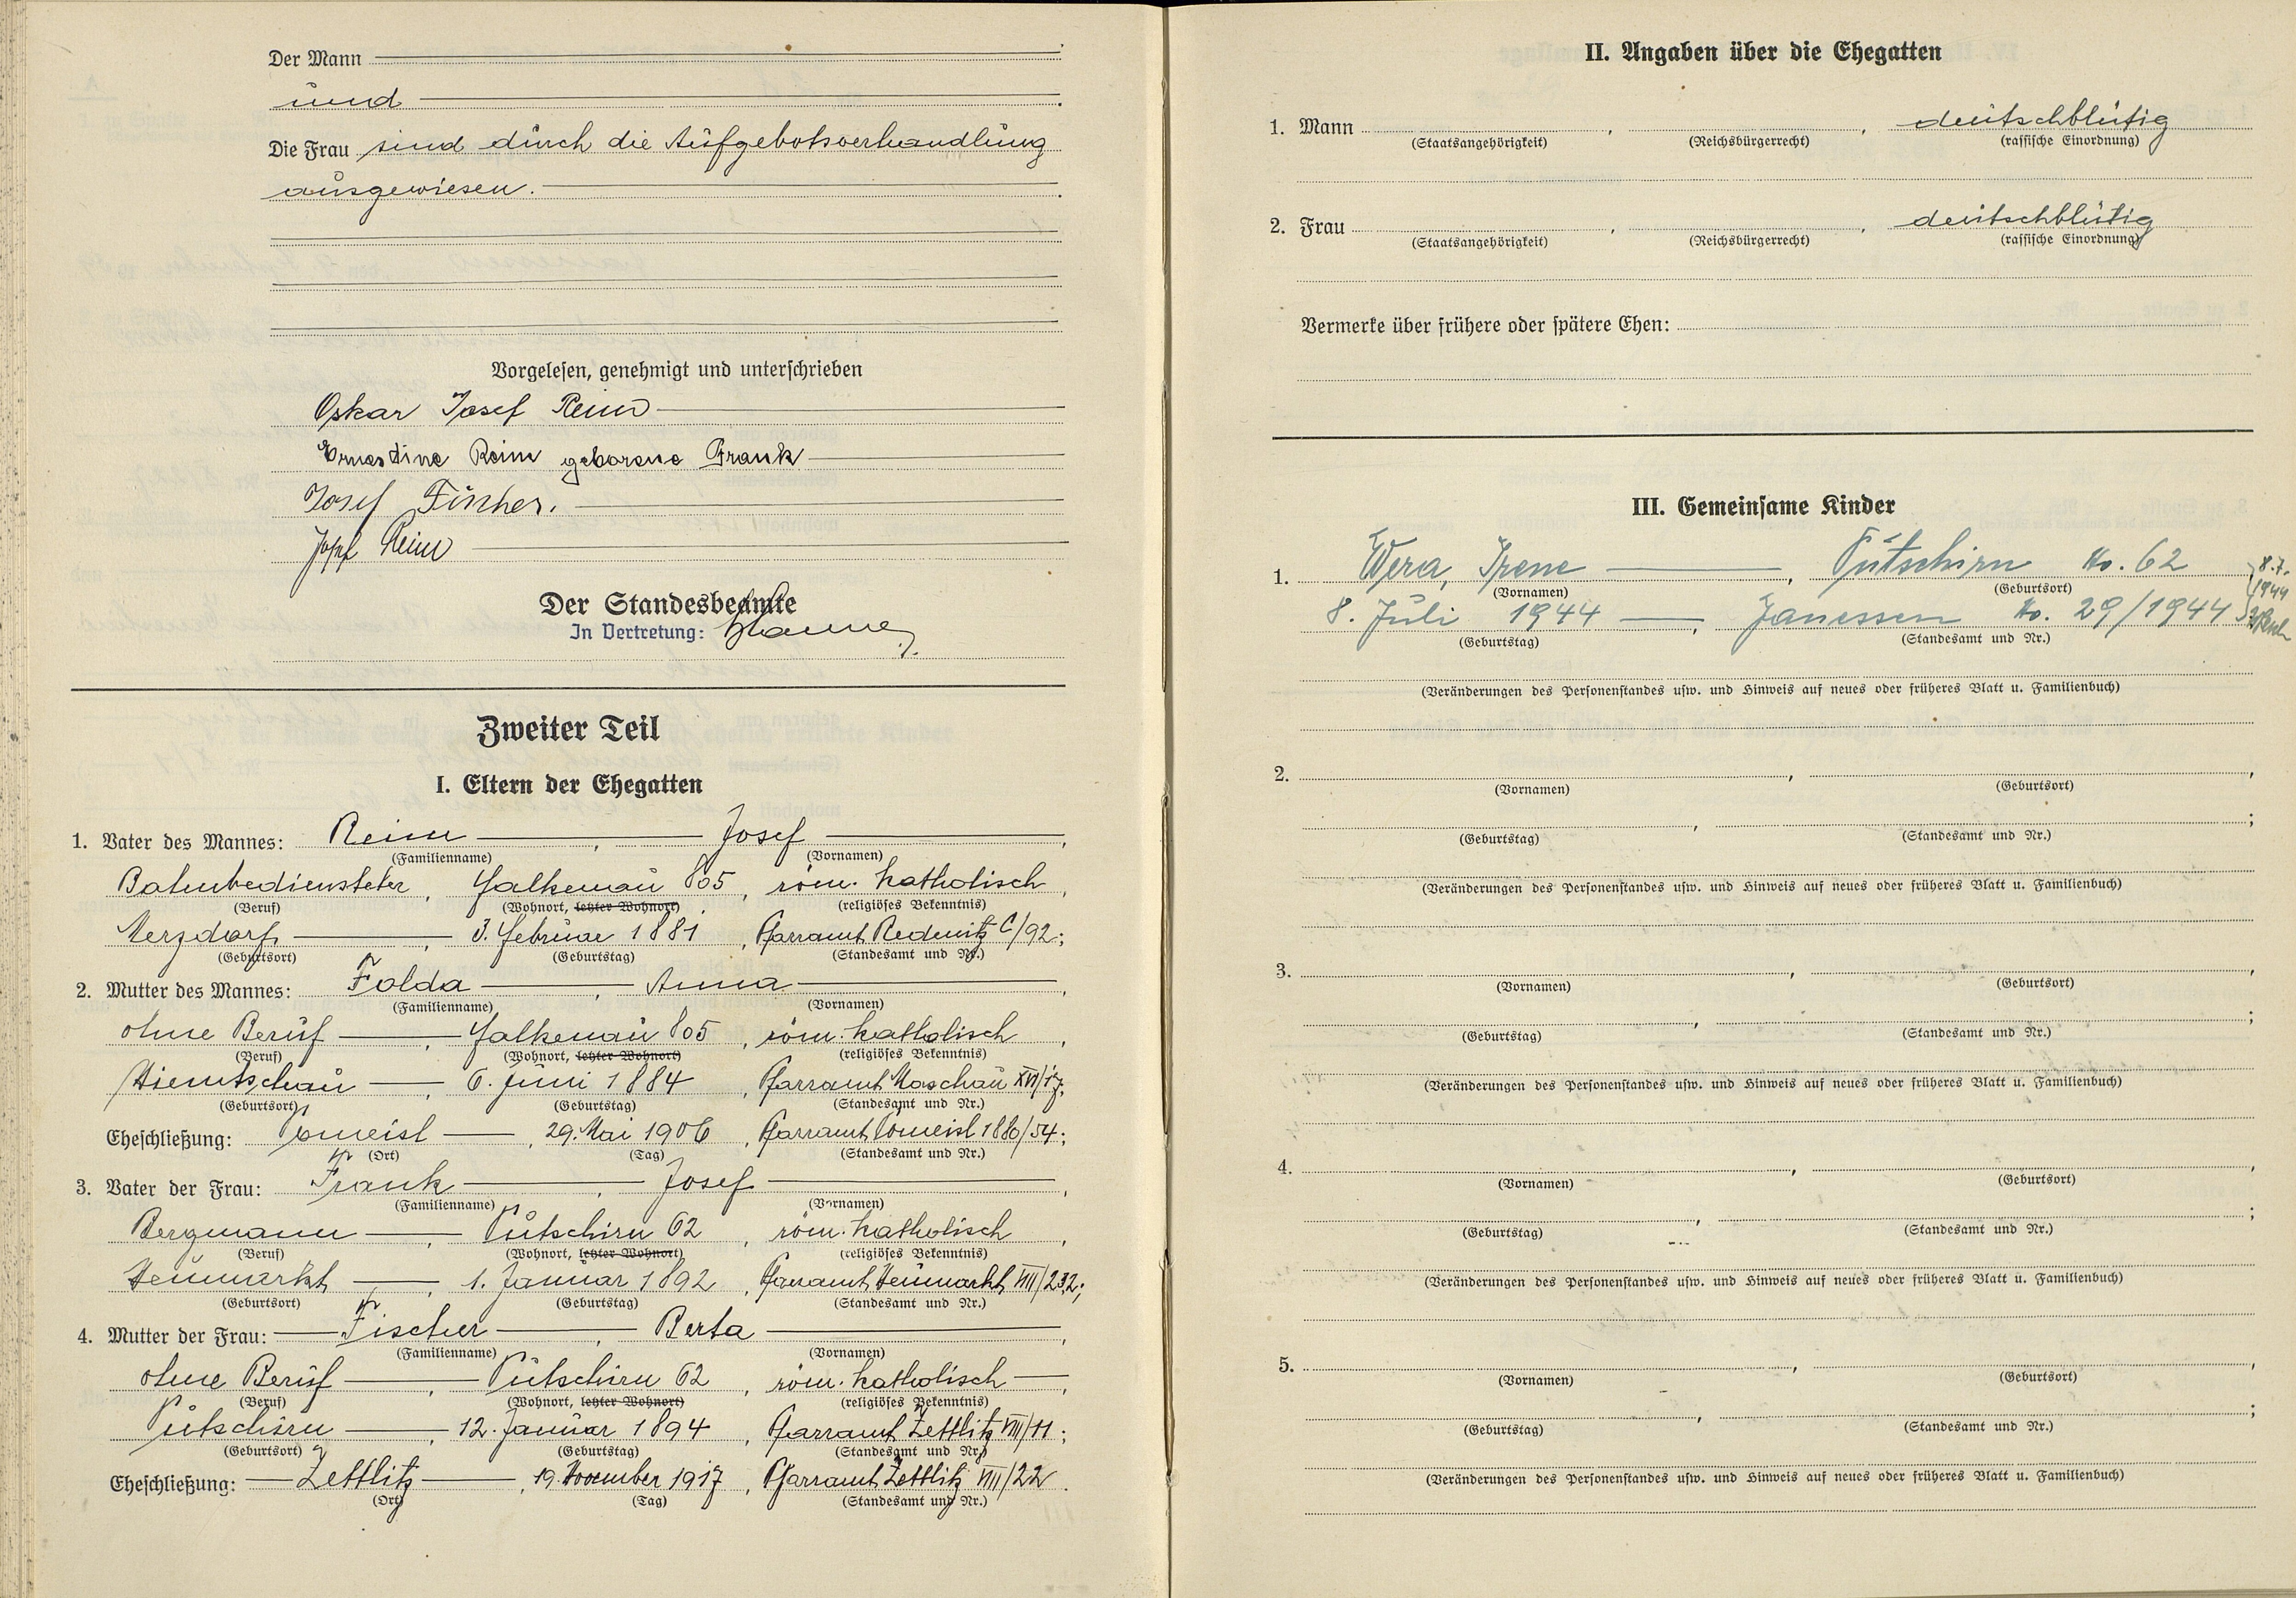 Der Mann
und
Die Frau sind durch die Aufgebotsverhandlung
ausgewiesen.
Vorgelesen, genehmigt und unterschrieben
Oskar Josef Reim
Ernestine Reim geborene Frank
Josef Fischer.
Josef Reim
Der Standesbeamte
In Vertretung:
Zweiter Teil
I. Eltern der Ehegatten
1. Vater des Mannes: Reim, Josef,
(Familienname) (Vornamen)
Bahnbediensteter, Falkenau 805, röm. katholisch,
(Beruf) (Wohnort, letzter Wohnort) (religiöses Bekenntnis)
Merzdorf, 3. Februar 1881, Pfarramt Redenitz C/92;
(Geburtsort) (Geburtstag) (Standesamt und Nr.)
2. Mutter des Mannes: Folda, Anna,
(Familienname) (Vornamen)
ohne Beruf, Falkenau 805, röm. katholisch,
(Beruf) (Wohnort, letzter Wohnort) (religiöses Bekenntnis)
6. Juni 1884, Pfarramt Maschau XVI/17;
(Geburtsort) (Geburtstag) (Standesamt und Nr.)
Eheschließung: Pomeisl, 29. Mai 1906, Pfarramt Pomeisl 1880/54;
(Ort) (Tag) (Standesamt und Nr.)
3. Vater der Frau: Frank, Josef,
(Familienname) (Vornamen)
Bergmann, Putschirn 62, röm. katholisch,
(Beruf) (Wohnort, letzter Wohnort) (religiöses Bekenntnis)
Neumarkt, 1. Januar 1892, Pfarramt Neumarkt VIII/232;
(Geburtsort) (Geburtstag) (Standesamt und Nr.)
4. Mutter der Frau: Fischer, Berta,
(Familienname) (Vornamen)
ohne Beruf, Putschirn 62, röm. katholisch,
(Beruf) (Wohnort, letzter Wohnort) (religiöses Bekenntnis)
Putschirn, 12. Januar 1894, Pfarramt Zettlitz VIII/11;
(Geburtsort) (Geburtstag) (Standesamt und Nr.)
Eheschließung: Zettlitz, 19. November 1917, Pfarramt Zettlitz VIII/22.
(Ort) (Tag) (Standesamt und Nr.)
II. Angaben über die Ehegatten
1. Mann , , deutschblütig
(Staatsangehörigkeit) (Reichsbürgerrecht) (rassische Einordnung)
2. Frau , , deutschblütig
(Staatsangehörigkeit) (Reichsbürgerrecht) (rassische Einordnung)
Vermerke über frühere oder spätere Ehen:
III. Gemeinsame Kinder
1. Wera, Irene, Putschirn No. 62 8.7.
(Vornamen) (Geburtsort) 1944
8. Juli 1944, Janessen No. 29/1944
(Geburtstag) (Standesamt und Nr.)
(Veränderungen des Personenstandes usw. und Hinweis auf neues oder früheres Blatt u. Familienbuch)
2. , ,
(Vornamen) (Geburtsort)
, ;
(Geburtstag) (Standesamt und Nr.)
(Veränderungen des Personenstandes usw. und Hinweis auf neues oder früheres Blatt u. Familienbuch)
3. , ,
(Vornamen) (Geburtsort)
, ;
(Geburtstag) (Standesamt und Nr.)
(Veränderungen des Personenstandes usw. und Hinweis auf neues oder früheres Blatt u. Familienbuch)
4. , ,
(Vornamen) (Geburtsort)
, ;
(Geburtstag) (Standesamt und Nr.)
(Veränderungen des Personenstandes usw. und Hinweis auf neues oder früheres Blatt u. Familienbuch)
5. , ,
(Vornamen) (Geburtsort)
, ;
(Geburtstag) (Standesamt und Nr.)
(Veränderungen des Personenstandes usw. und Hinweis auf neues oder früheres Blatt u. Familienbuch)